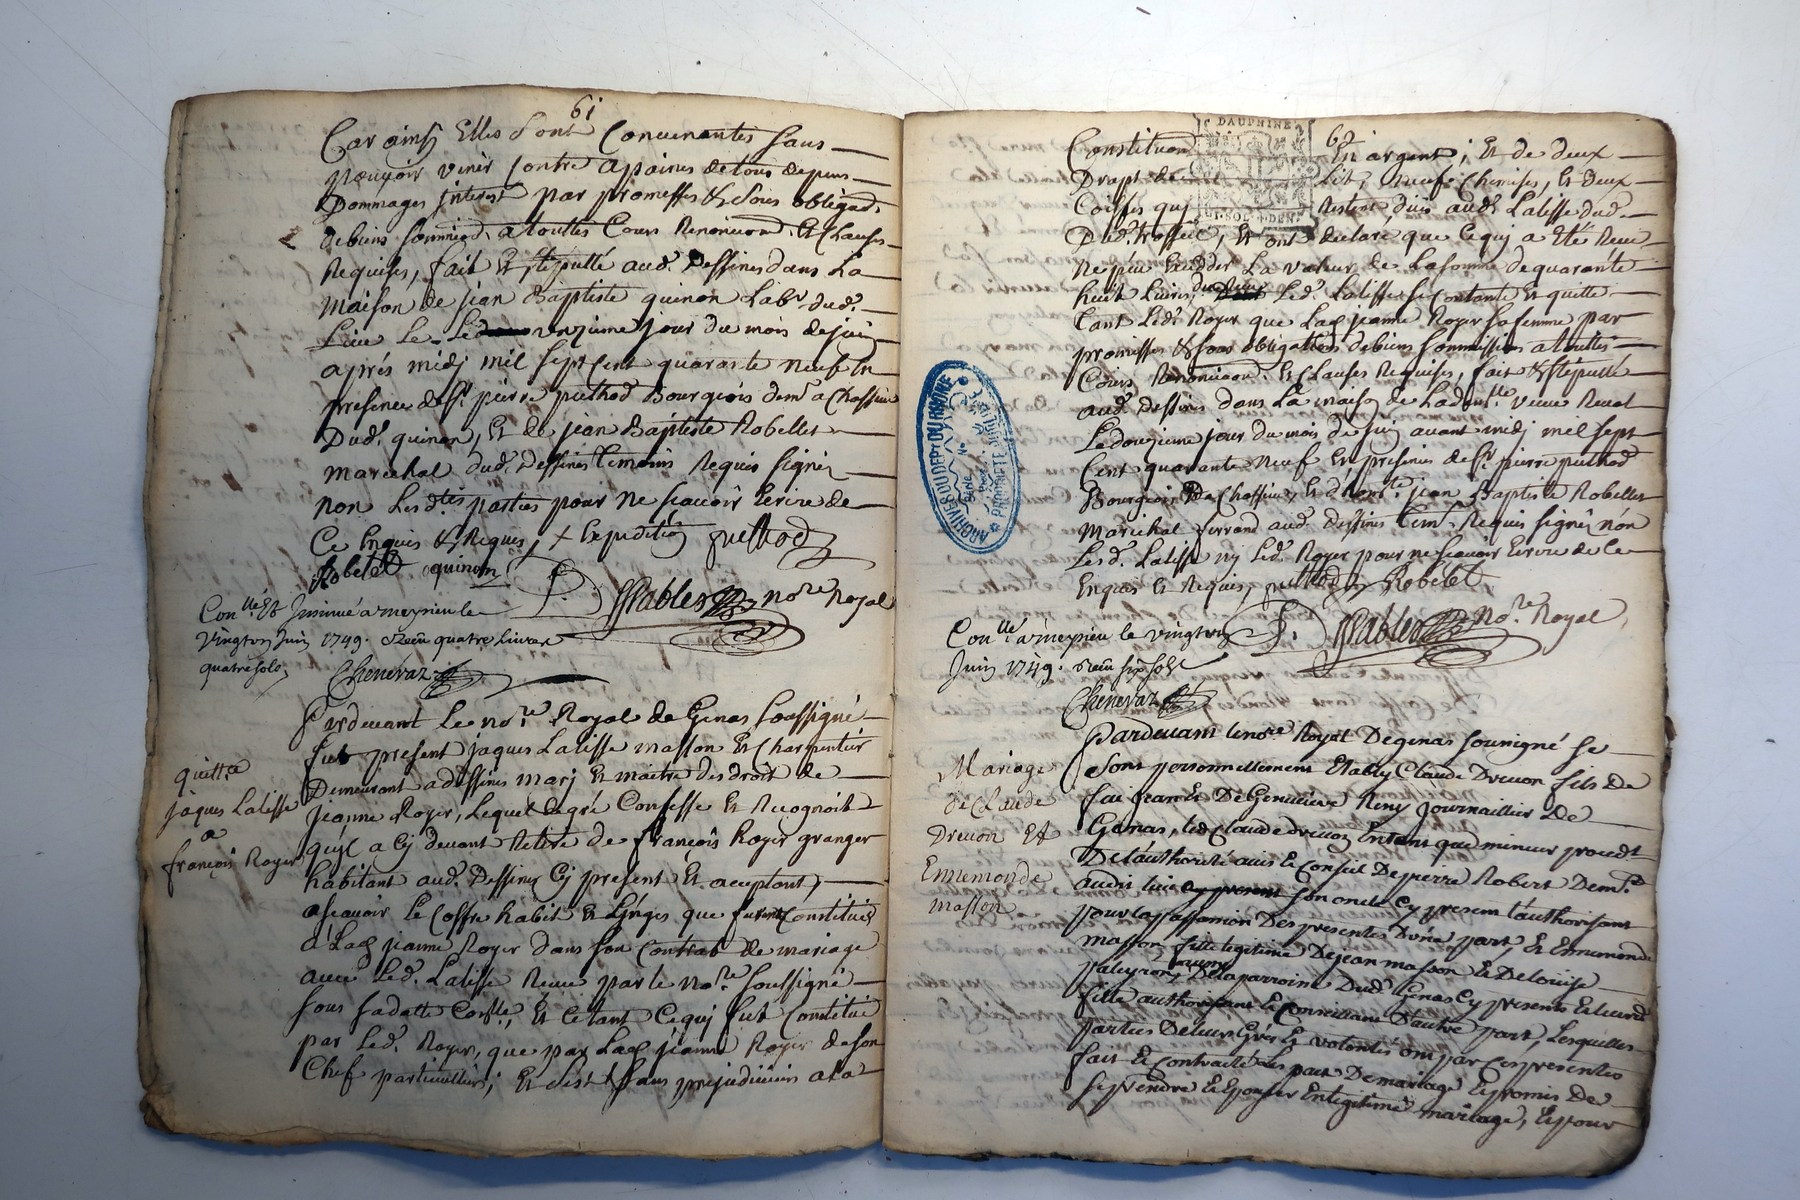 61
Car ainsy Elles sont Concuenantes sans
pouvoir venir Contre apaines de tous depens
Dommages interest par promesses & sous obligaon.
de biens sommiōn. a touttes Cours Renonciaōn. Et Clauses
Requises, fait Et stéputté aud. Dessines dans La
maison de jean Baptiste quinon Labr. dud.
Lieu le onzieme jour du mois de juin
aprés midj mil sept Cent quarante neuf En
presence de Sr. pierre puthod Bourgeois demt. a Chassieu
Dud. quinon, Et de jean Baptiste Robellet
marechal dud. Dessines temoins Requis signés
non Lesdtes parties pour ne scavoir Ecrire de
Ce Enquis & Requis, x Expedition puthod
Robelet quinon P. Dessables nore. Royal
Conlle. Et Insinué a meyzieu le
vingt Juin 1749. Reçu quatre Livres
quatre sols
Chenevaz
Pardevant le nore. Royal de Genas soussigné
fut present jaques Latisse masson Et Charpentier
Demeurant a dessines marj Et maitre des droit de
jeanne Royer, Lequel de gré Confesse Et Recognoit
quil a Cy devant Retiré de françois Royer granger
habitant aud. Dessines Cy present Et aceptant,
ascavoir Le Coffre habit Et Linges que furent Constitués
à Lad. jeanne Royer dans son Contrat de mariage
avec Led. Latisse Reçu par le nore. soussigné
sous sa datte Conlle., Et Cetant Ce quj fut Constitué
par Led. Royer, que par Lad. jeanne Royer de son
Chef particullier; Et C'est sans prejudicier a la
quitte
jâques Latisse
a
françois Royer
DAUPHINE
62
Constitution En argent; Et de deux
Drapt de Lit, neuf Chemises, Et deux
Coiffes quj Restent duis aud. Latisse dud.
Trossel, Et ont declaré que Ce quj a Eté Reçu
ne peu Exceder La valeur de La somme de quarante
huit Livres, Led. Latisse se Contante Et quitte
tant Led. Royer que Lad. jeanne Royer sa femme par
promesses & sous obligations de biens sommissions a touttes
Cours Renonciaōn. Et Clauses Requises, fait & stéputté
aud. Dessines dans La maison de La demlle. veuve Revol
Le douzieme jour du mois de juin avant midj mil sept
Cent quarante neuf En presence de Sr. pierre puthod
Bourgeois De Chassieu, Et d'honte. jean Baptiste Robellet
Marechal ferrand aud. dessines temt. Requis signés non
Lesd. Latisse ny Led. Royer pour ne scavoir Ecrire de Ce
Enquis Et Requis, puthod Robelet
P. Dessables Nore. Royal
Conlle. a meyzieu le vingt
Juin 1749. Reçu six sols
Chenevaz
ARCHIVES DU DEPT DU RHONE
PROPRIÉTÉ PUBLIQUE
Mariage
de Claude
Drevon Et
Ennemonde
masson
Pardevant le nore. Royal De genas soussigné se
sont personnellement Etably Claude Drevon fils De
feu jean Et De Genevieve Remy journaillier De
Genas, led Claude drevon Entant que mineur procedt.
De l'authorité avis Et Conseil De pierre Robert Demt.
audit lieu son oncle Cy present l'authorisant
pour la passassion Des presentes Dune part, Et Ennemonde
masson fille legitime De jean masson Et De Loüise
paleyron, De la parroisse Dud. Genas Cy presents Et leurd.
fille authorisant Et Conseillant D'autre part, Lesquelles
parties De leurs Grés Et volontés ont par Ces presentes
fait Et Contraité Les pact De mariage Et promis De
se prendre Et Epouser En legitime mariage, Et pour